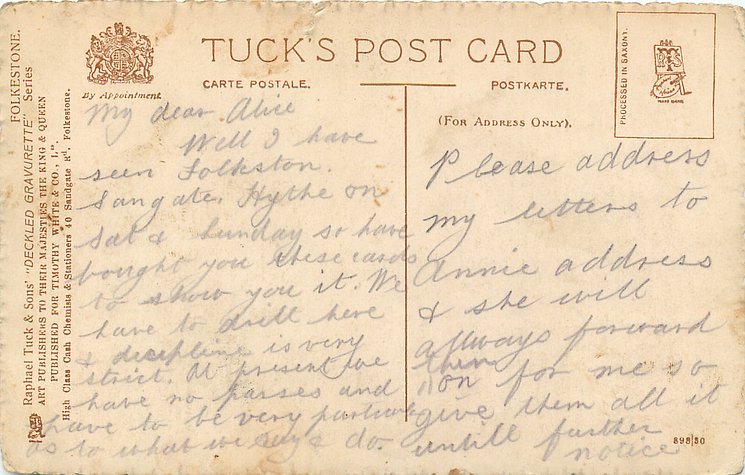 TUCK'S POST CARD
CARTE POSTALE.
POSTKARTE.
By Appointment
(FOR ADDRESS ONLY).
PROCESSED IN SAXONY.
FOLKESTONE.
Raphael Tuck & Sons' "DECKLED GRAVURETTE" Series
ART PUBLISHERS TO THEIR MAJESTIES THE KING & QUEEN
PUBLISHED FOR TIMOTHY WHITE & CO., Ld.
High Class Cash Chemists & Stationers 40 Sandgate Rd. Folkestone.
My dear Alice
Well I have
seen Folkston.
Sangate. Hythe on
Sat & Sunday so have
bought you these cards
to show you it. We
have to drill here
& decipline is very
strict. At present we
have no passes and
have to be very particular
as to what we say & do.
Please address
my letters to
Annie address
& she will
allways forward
them
on for me so
give them all it
untill farther
notice
898|30